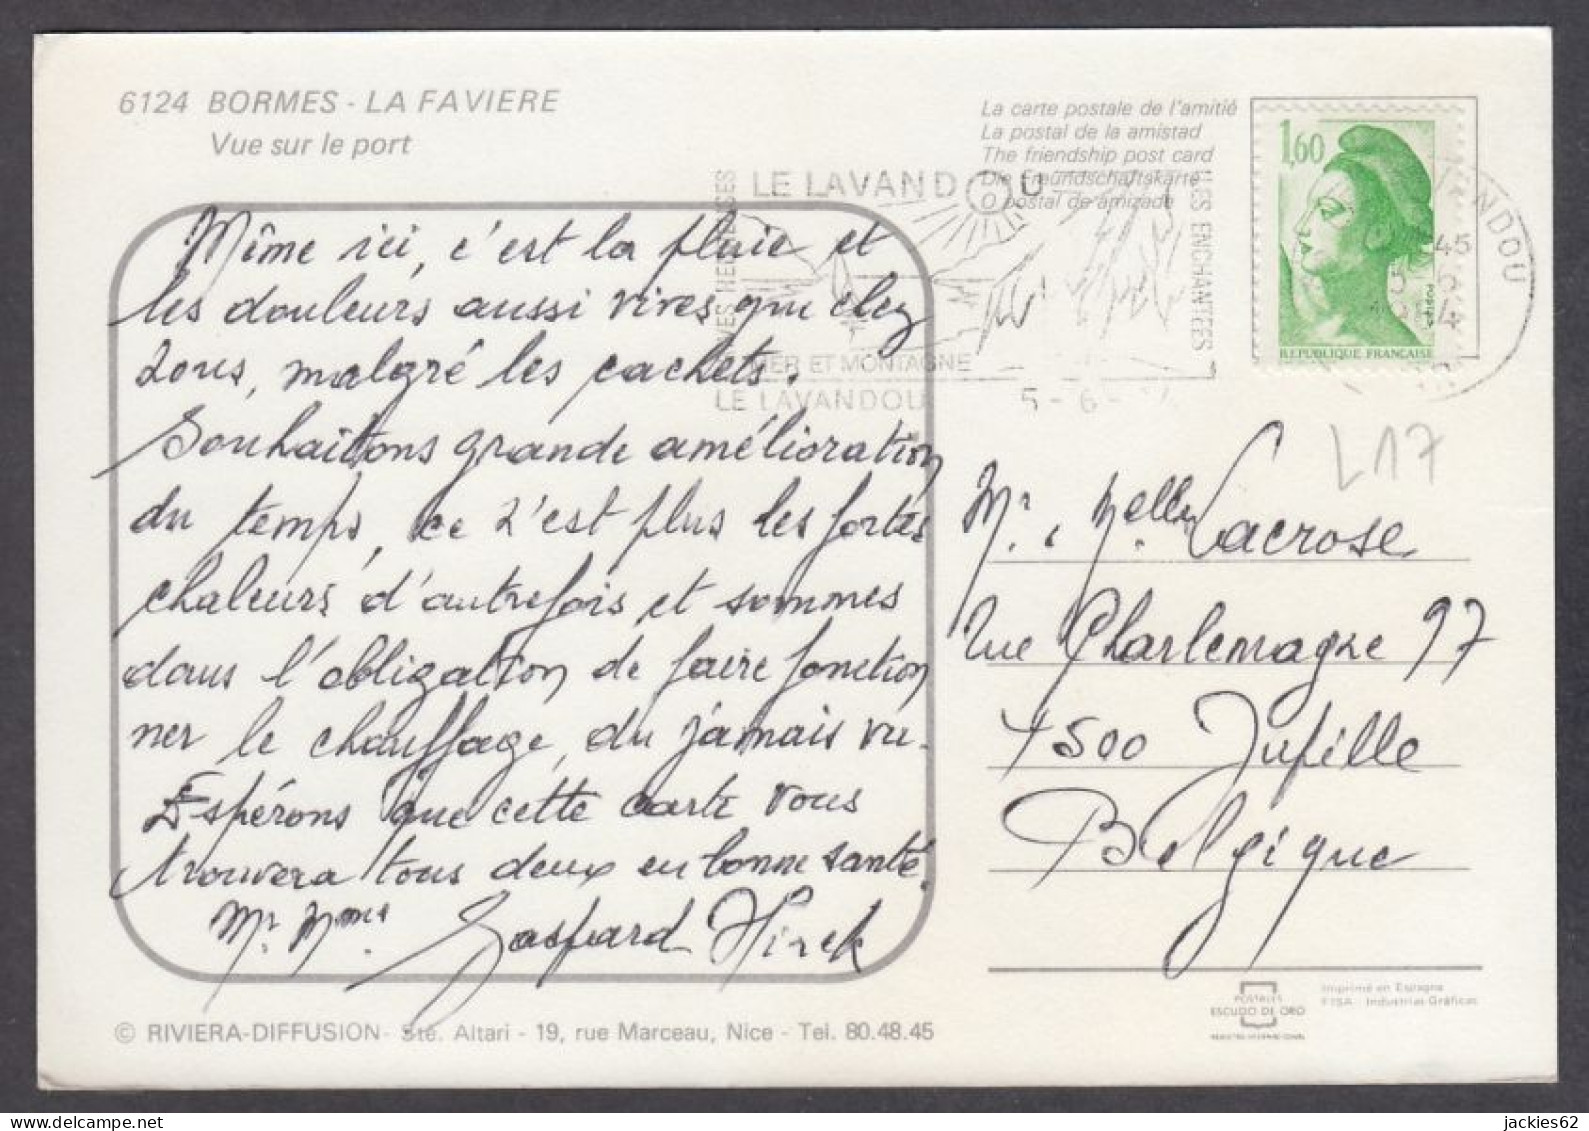 6124 BORMES - LA FAVIERE
Vue sur le port
La carte postale de l'amitié
La postal de la amistad
The friendship post card
Die Freundschaftskarte
O postal de amizade
1,60
POSTES
REPUBLIQUE FRANÇAISE
LE LAVANDOU
ILES ENCHANTEES
MER ET MONTAGNE
LE LAVANDOU
5-6-
L17
Même ici, c'est la pluie et
les douleurs aussi vives que chez
vous, malgré les cachets.
Souhaitons grande amélioration
du temps, ce n'est plus les fortes
chaleurs d'autrefois et sommes
dans l'obligation de faire fonction
ner le chauffage, du jamais vu.
Espérons que cette carte vous
trouvera tous deux en bonne santé.
Mr. Mme. Gaspard Hirck
Mr. Melle Lacrose
Rue Charlemagne 97
4500 Jupille
Belgique
© RIVIERA-DIFFUSION - Sté. Altari - 19, rue Marceau, Nice - Tel. 80.48.45
POSTALES
ESCUDO DE ORO
Imprimé en Espagne
FISA - Industrias Gráficas
jackies62